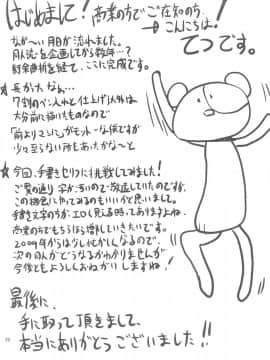 はじめまして!商業の方でご存知の方、
→こんにちは!
てつです。
なが〜い月日が流れました。
を企画してから数年…?
紆余曲折を経て、ここに完成です。
★長かったなぁ…
7割のペン入れと仕上げ以外は
大分前に描いたものなので
「前よりマシ」がモットーな俺ですが
少々至らない所もあったかな〜と
★今回、手書きセリフに挑戦してみました!
ご覧の通り字が汚いので敬遠していたのですが、
この機会にやってみるのもいいかと思いまして。
手書き文字の方がエロく見える時ってありますよね。
商業の方でもちらほら増していきたいです。
2009年からは少し忙しくなるので、
次のがどうなるかわかりませんが
今後ともよろしくおねがいしますね!
最後に、
手に取って頂きまして、
本当にありがとうございました!!